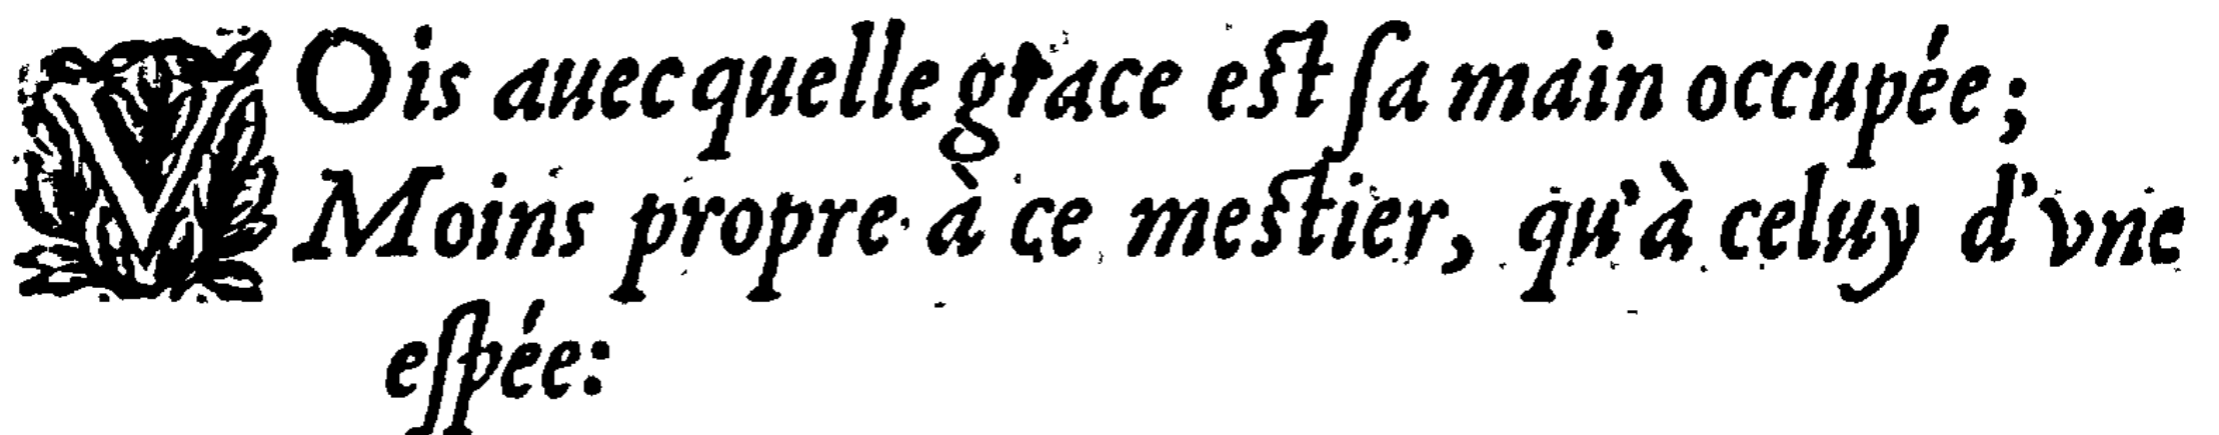 VOis auec quelle grace est ſa main occupée;
Moins propre à ce mestier, qu'à celuy d'vne
eſpée: